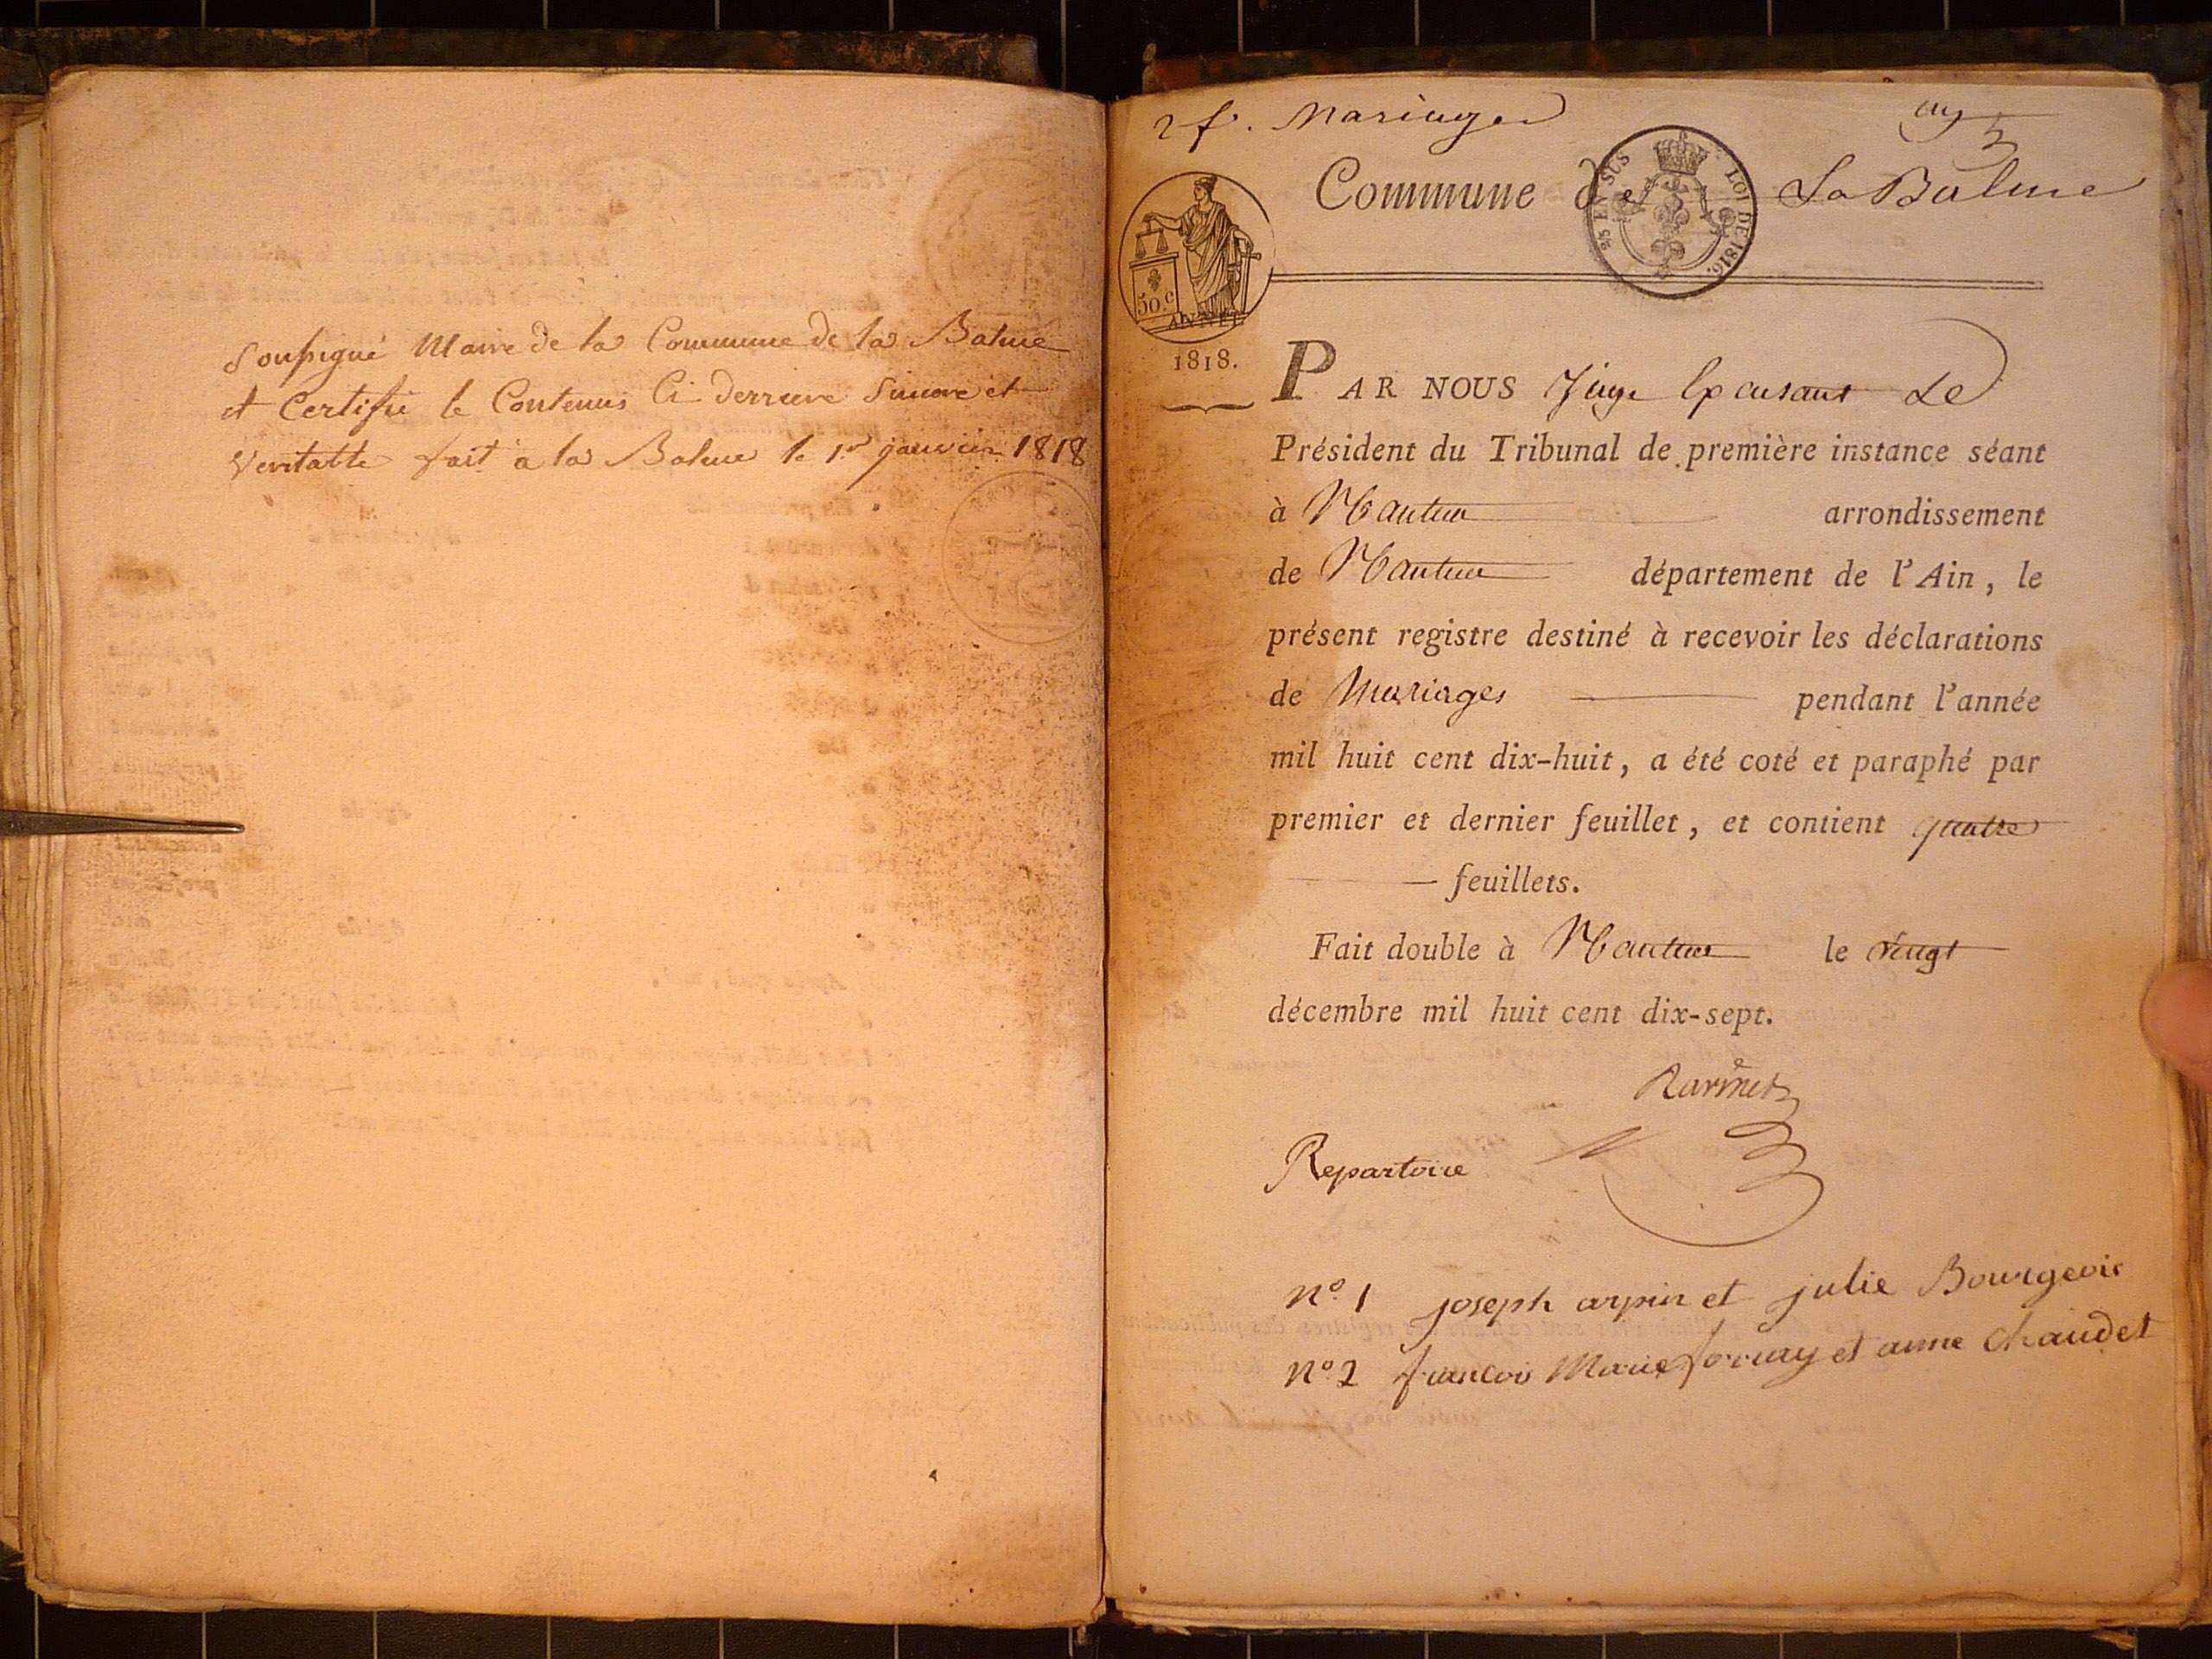 Soussigné Maire de la Commune de la Balme
et Certifie le Contenus Ci derriere Sincere et
Veritable fait a la Balme le 1er janvier 1818
2 f. Mariages
Commune de La Balme
25 EN SUS LOI DE 1816.
50.c
ANNÉE
1818.
PAR NOUS Juge Exerçant Le
Président du Tribunal de première instance séant
à Nantua arrondissement
de Nantua département de l'Ain, le
présent registre destiné à recevoir les déclarations
de Mariages pendant l'année
mil huit cent dix-huit, a été coté et paraphé par
premier et dernier feuillet, et contient quatre
feuillets.
Fait double à Nantua le vingt
décembre mil huit cent dix-sept.
Repartoire
n.° 1 joseph arpin et julie Bourgeois
n° 2 francois Marie fornay et anne Chaudet